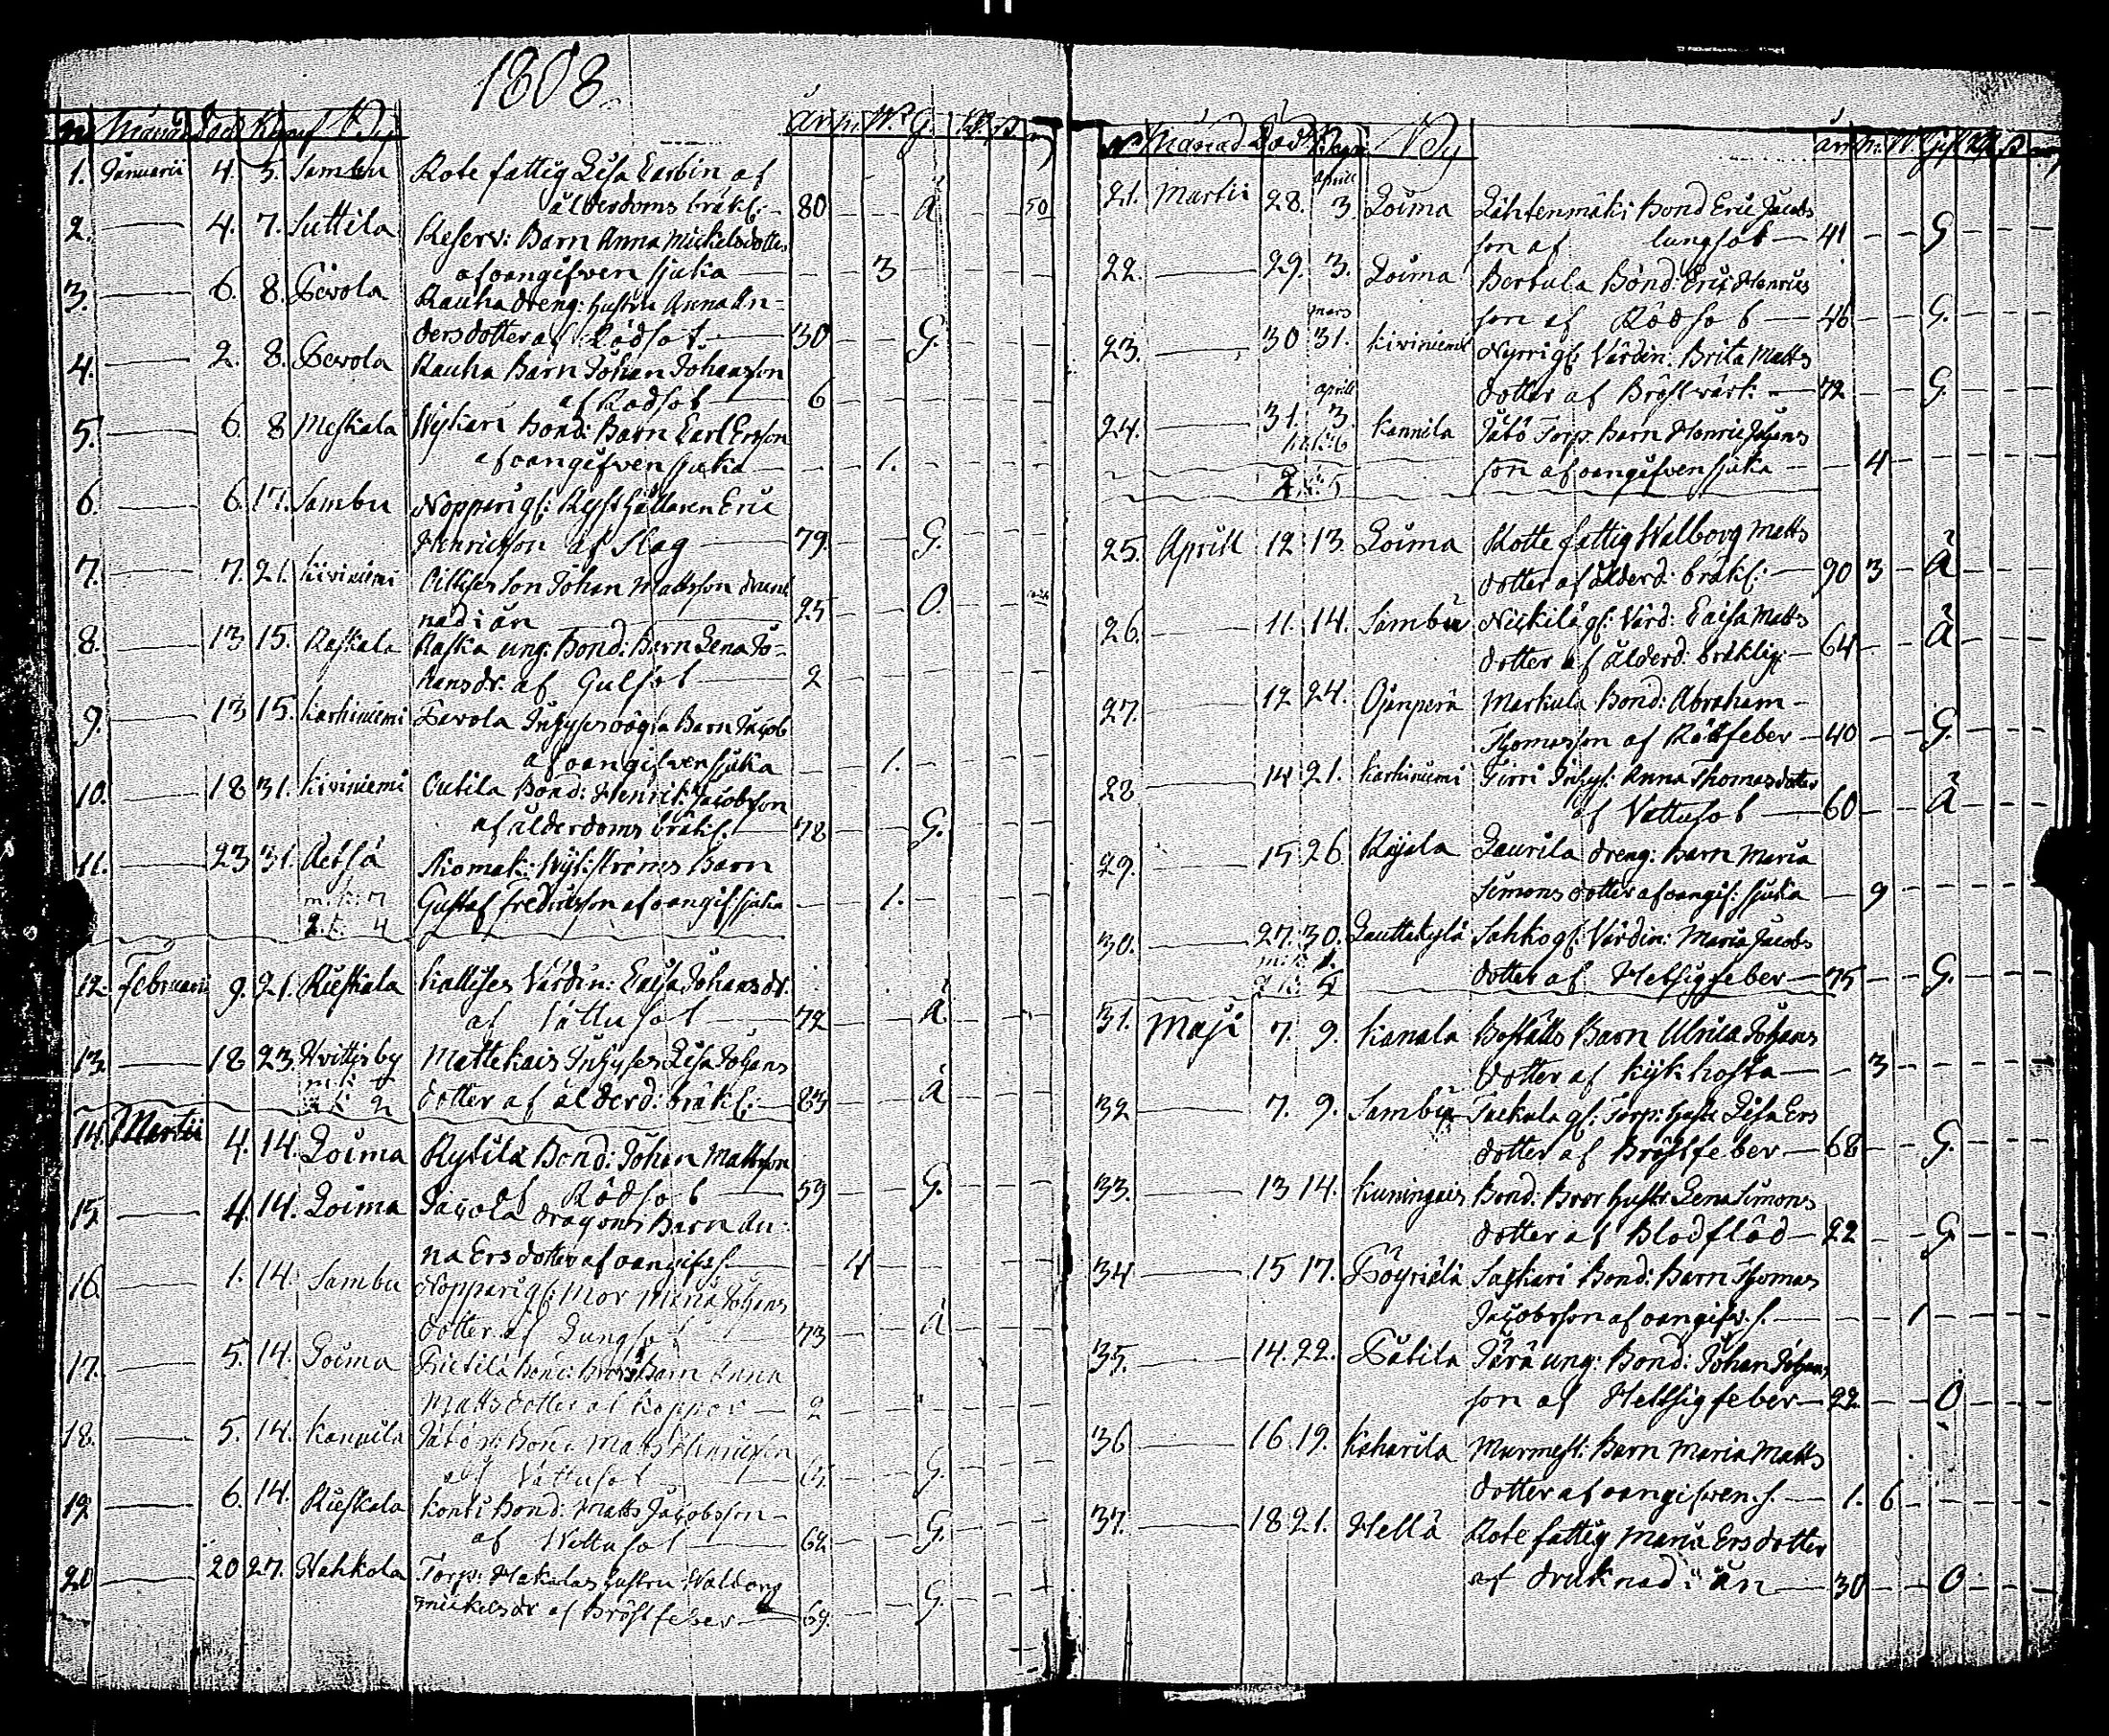 1808
No Månad Död Begr. By år m. W. G.
1. Januarii 4. 5. Sambu Rote fattig Lisa Carbin af
ålderdoms bräkl: 80 Ä 50
2. 4. 7. Suttila Reserv: Barn Anna Mickelsdotter
af oangifven sjuka 3
3. 6. 8. Pevola Rauha dreng: hustru Anna An-
dersdotter af Rödsot. 30 G.
4. 2. 8. Pevola Rauha Barn Johan Johansson
af Rödsot 6
5. 6. 8 Meskala Bond: Barn Carl Ersson
af oangifven sjuka 1.
6. 6. 17. Sambu Nopparigs: Rysthållaren Eric
Henricsson af Slag 79. G.
7. 7. 21. Kiviniemi Son Johan Mattsson drunk
nad i ån 25 O.
8. 13 15. Raskala Raska ung: Bond: Barn Lena Jo-
hansdr. af Gulsot 2
9. 13 15. Karhiniemi Pevola Inhyses Barn Jacob
af oangifven sjuka 1.
10. 18 31. Kiviniemi Outila Bond: Henrik: Jacobsson
af ålderdoms bräkl. 78 G.
11. 23 31. Retsä Skomak: Wikströms Barn
m.k: 7 Gustaf Fredricsson af oangif: sjuka 1.
q.k: 4
12. Februarii 9. 21. Rieskala Kattises Värdin: Caisa Johansdr.
af Vattusot 72 Ä
13. 18 23 Hvittisby Mattekais Inhyses Lisa Johans
q.k: 2 dotter af ålderd: bräkl: 83 Ä
14. Martii 4. 14. Loima Rytilä Bond: Johan Mattsson
af Rödsot 59 G.
15 4. 14. Loima Jacola dragons Barn An-
na Ersdotter af oangif: s. 4
16. 1. 14. Sambu Nopparigs: Mor Maria Johans
dotter af Lungsot 73 Ä
17. 5. 14. Loima Bond: Brors Barn Anna
Mattsdotter af koppor 2
18. 5. 14. Kannila Bond: Matts Henricsson
af Vattusot G.
19. 6. 14. Rieskala Konti Bond: Matts Jacobsson
af Vattusot 62 G.
20 20 27. Hahkola Torp: Hakalas hustru Walborg
Mickelsdr af Bröstfeber 69. G.
No Månad Död Begr. By år m. W. Gift
21. Martii 28. aprill 3. Loima Lähtenmäki Bond Eric Jacobs
son af lungsot 41 G
22. 29. 3. Loima Bertula Bond: Eric Henrics
son af Rödsot 46 G.
23. 30 mars 31. Kiviniemi Nyrrigs Värdin: Brita Matts
dotter af Bröstvärk 72 G.
24. 31. aprill 3. Kannila Torp. Barn Henric Johans
m.k: 6 son af oangifven sjuka 4
q.k: 5
25. Aprill 12 13. Loima Rotte fattig Walborg Matts
dotter af ålderd: bräkl: 90 3 Ä
26. 11. 14. Sambu Nickilägs: Värd: Caisa Matts
dotter af ålderd: bräklig: 64 Ä
27. 12 24. Ojanperä Markula Bond: Abraham
Thomasson af Rötfeber 40 G.
28 14 21. Karhiniemi Pirri Inhys: Anna Thomasdotter
af Vattusot 60 Ä
29. 15 26. Kejala Laurila dreng: Barn Maria
Simonsdotter af oangif: sjuka 9
30. 27. 30. Lauttakylä Sahkogs: Värdin: Maria Jacobs
m.k: 1. dotter af Hetsigfeber 75 G.
q.k: 5
31. Maji 7. 9. Kanala Bostälts Barn Ulrica Johans
dotter af kikhosta 3
32 7. 9. Sambu gs: Torp: hustr Lisa Ers
dotter af Bröstfeber 68 G.
33. 13 14. Kuningais Bond: Bror hustr: Lena Simons
dotter af Blodflöd 22 G
34 15 17. Pöyriälä Saskari Bond: Barn Thomas
Jacobsson af oangifv. s. 1
35. 14. 22. Pätilä Järä ung: Bond: Johan Johans
son af Hetsigfeber 22. O
36 16. 19. Kaharila Murmest: Barn Maria Matts
dotter af oangifven. s. 1. 6
37. 18 21. Hellä Rote fattig Maria Ersdotter
af druknad i ån 30 O.